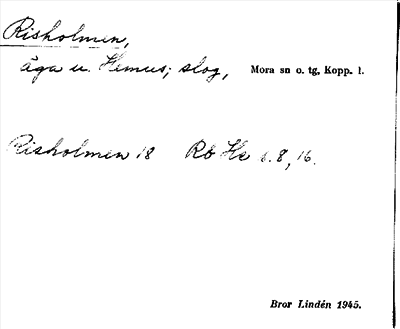 Risholmen,
äga u. Hemus; slog, Mora sn o. tg, Kopp. l.
Risholmen 18 Rb Hs s. 8, 16.
Bror Lindén 1945.